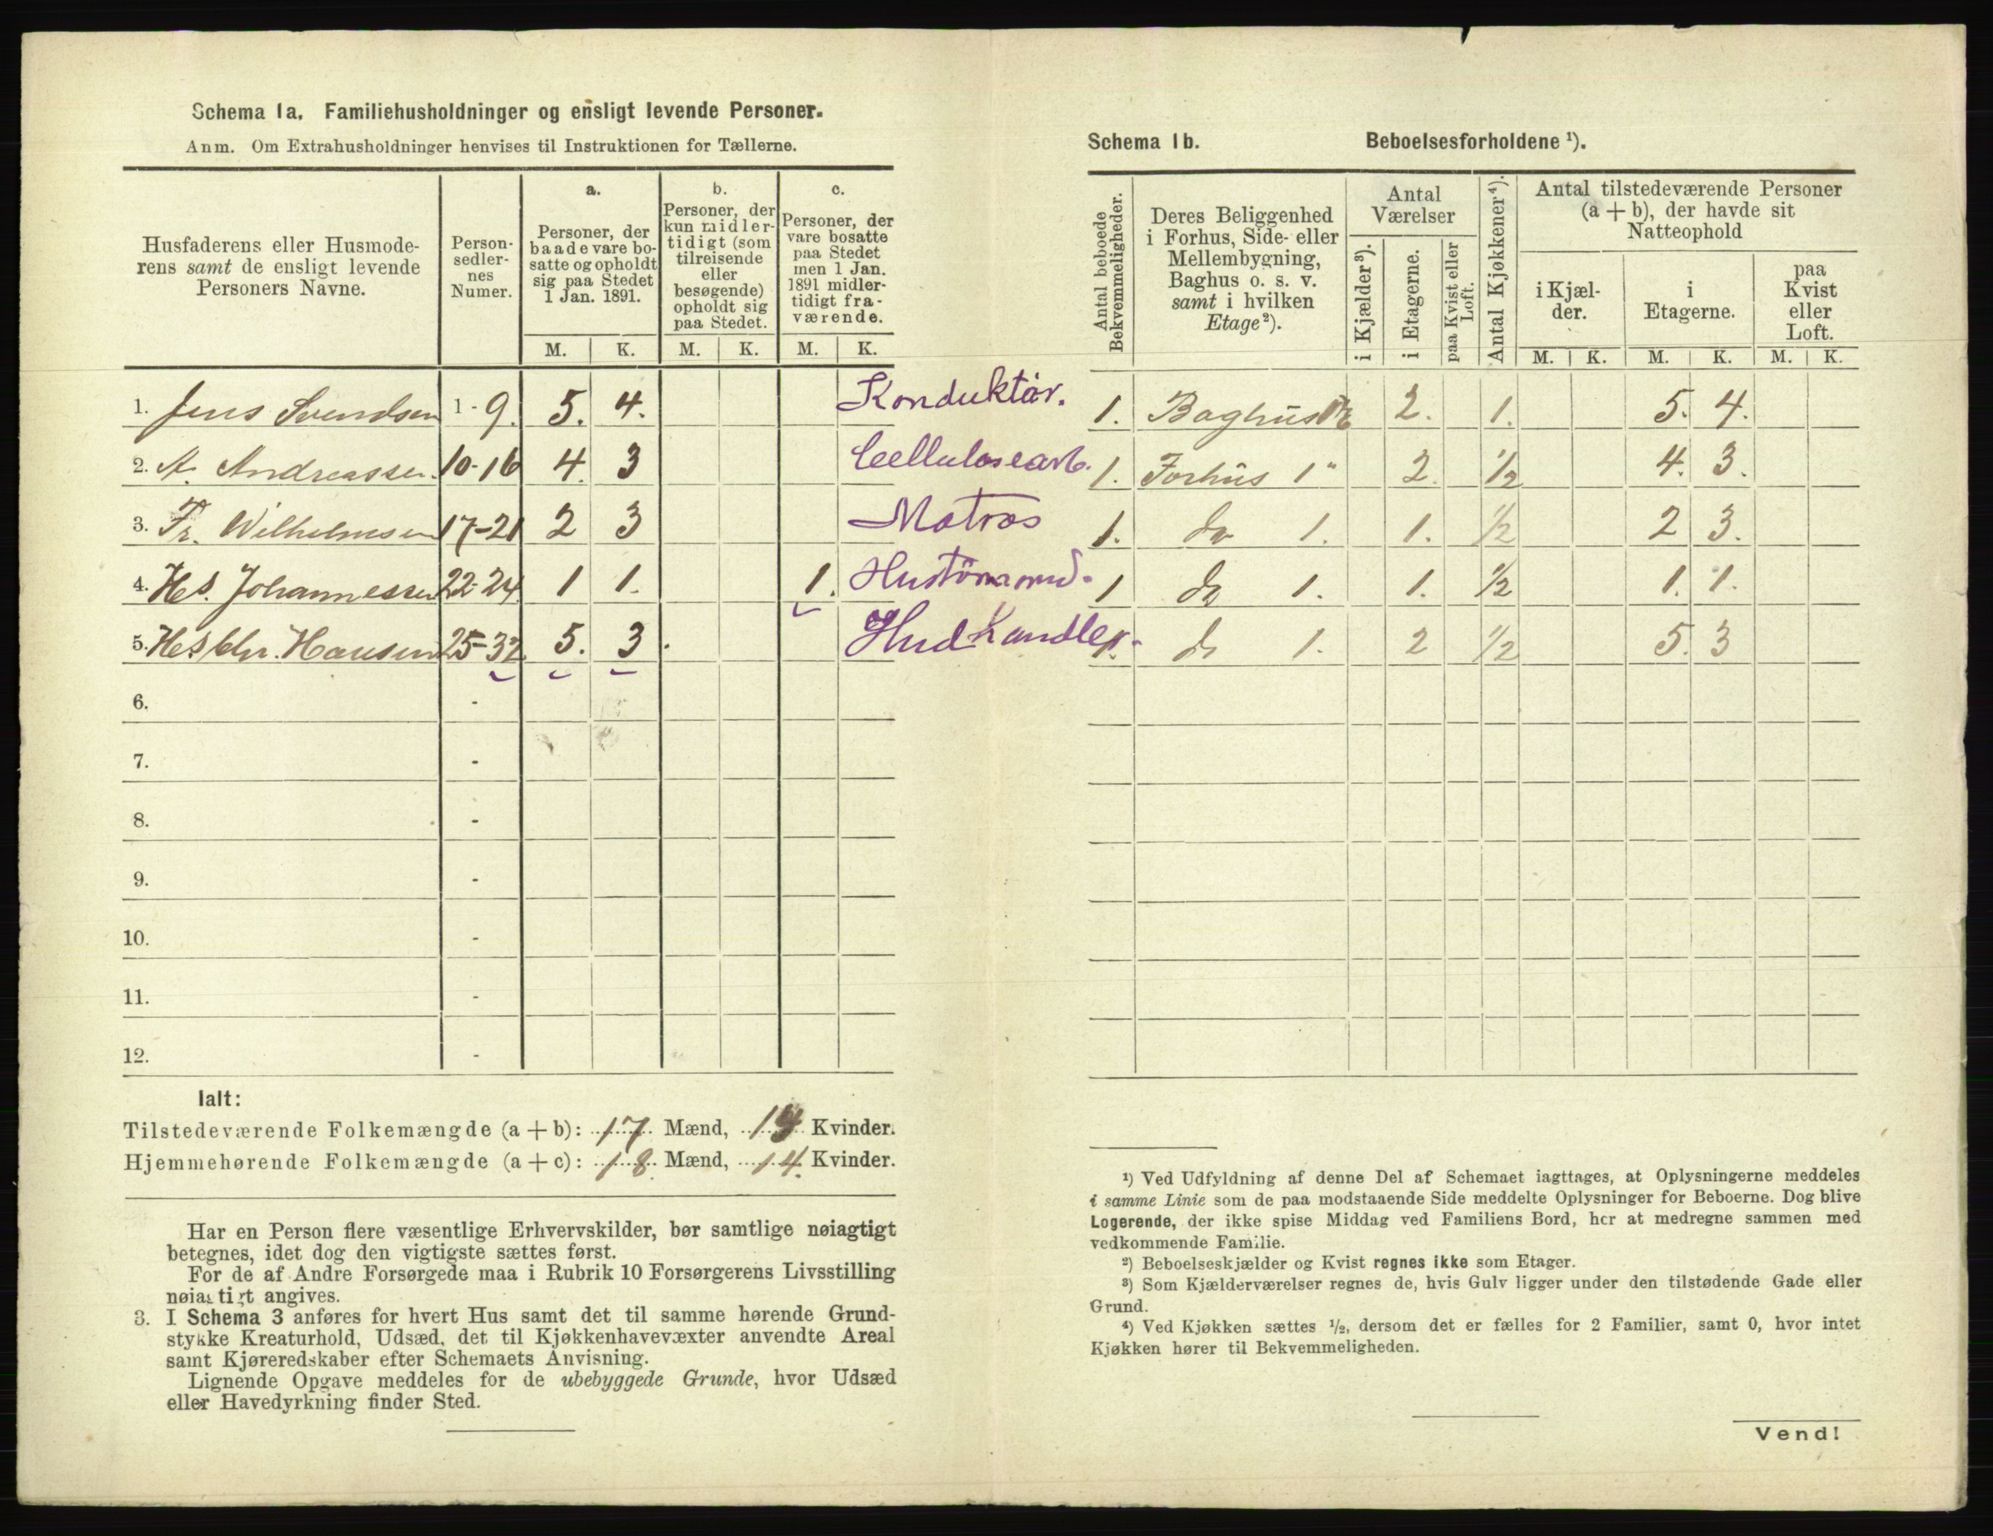 Schema 1a. Familiehusholdninger og ensligt levende Personer.
Anm. Om Extrahusholdninger henvises til Instruktionen for Tællerne.
Husfaderens eller Husmode-
rens samt de ensligt levende
Personers Navne.
Person-
sedler-
nes
Numer.
a.
Personer, der
baade vare bo-
satte og opholdt
sig paa Stedet
1 Jan. 1891.
b.
Personer, der
kun midler-
tidigt (som
tilreisende
eller
besøgende)
opholdt sig
paa Stedet.
c.
Personer, der
vare bosatte
paa Stedet
men 1 Jan.
1891 midler-
tidigt fra-
værende.
M. K. M. K. M. K.
1. Jens Svendsen 1-9. 5. 4. Konduktør.
2. A. Andreassen. 10-16 4. 3 Cellulosearb.
3. Fr. Wilhelmsen 17-21 2 3 Matros
4. Hs. Johannessen 22-24 1 1. 1. Hustømmermd.
5. Hs Chr. Hansen 25-32 5. 3 Hudhandler.
6. -
7. -
8. -
9. -
10. -
11. -
12. -
Ialt:
Tilstedeværende Folkemængde (a + b): 17 Mænd, 14 Kvinder.
Hjemmehørende Folkemængde (a + c): 18. Mænd, 14. Kvinder.
Har en Person flere væsentlige Erhvervskilder, bør samtlige nøiagtigt
betegnes, idet dog den vigtigste sættes først.
For de af Andre Forsørgede maa i Rubrik 10 Forsørgerens Livsstilling
nøiagtigt angives.
3. I Schema 3 anføres for hvert Hus samt det til samme hørende Grund-
stykke Kreaturhold, Udsæd, det til Kjøkkenhavevæxter anvendte Areal
samt Kjøreredskaber efter Schemaets Anvisning.
Lignende Opgave meddeles for de ubebyggede Grunde, hvor Udsæd
eller Havedyrkning finder Sted.
Schema 1b. Beboelsesforholdene ¹).
Antal beboede
Bekvemmeligheder.
Deres Beliggenhed
i Forhus, Side- eller
Mellembygning,
Baghus o. s. v.
samt i hvilken
Etage²).
Antal
Værelser
i Kjælder³).
i Etagerne.
paa Kvist eller
Loft.
Antal Kjøkkener⁴).
Antal tilstedeværende Personer
(a + b), der havde sit
Natteophold
i Kjæl-
der.
i
Etagerne.
paa
Kvist
eller
Loft.
M. K. M. K. M. K.
1. Baghus 2. 1. 5. 4.
1. Forhus 1" 2. ½ 4. 3.
1. do 1. 1. ½ 2 3.
1 do 1. 1. ½ 1. 1.
1. do 1. 2 ½ 5. 3
¹) Ved Udfyldning af denne Del af Schemaet iagttages, at Oplysningerne meddeles
i samme Linie som de paa modstaaende Side meddelte Oplysninger for Beboerne. Dog blive
Logerende, der ikke spise Middag ved Familiens Bord, her at medregne sammen med
vedkommende Familie.
²) Beboelseskjælder og Kvist regnes ikke som Etager.
³) Som Kjælderværelser regnes de, hvis Gulv ligger under den tilstødende Gade eller
Grund.
⁴) Ved Kjøkken sættes ½, dersom det er fælles for 2 Familier, samt 0, hvor intet
Kjøkken hører til Bekvemmeligheden.
Vend!